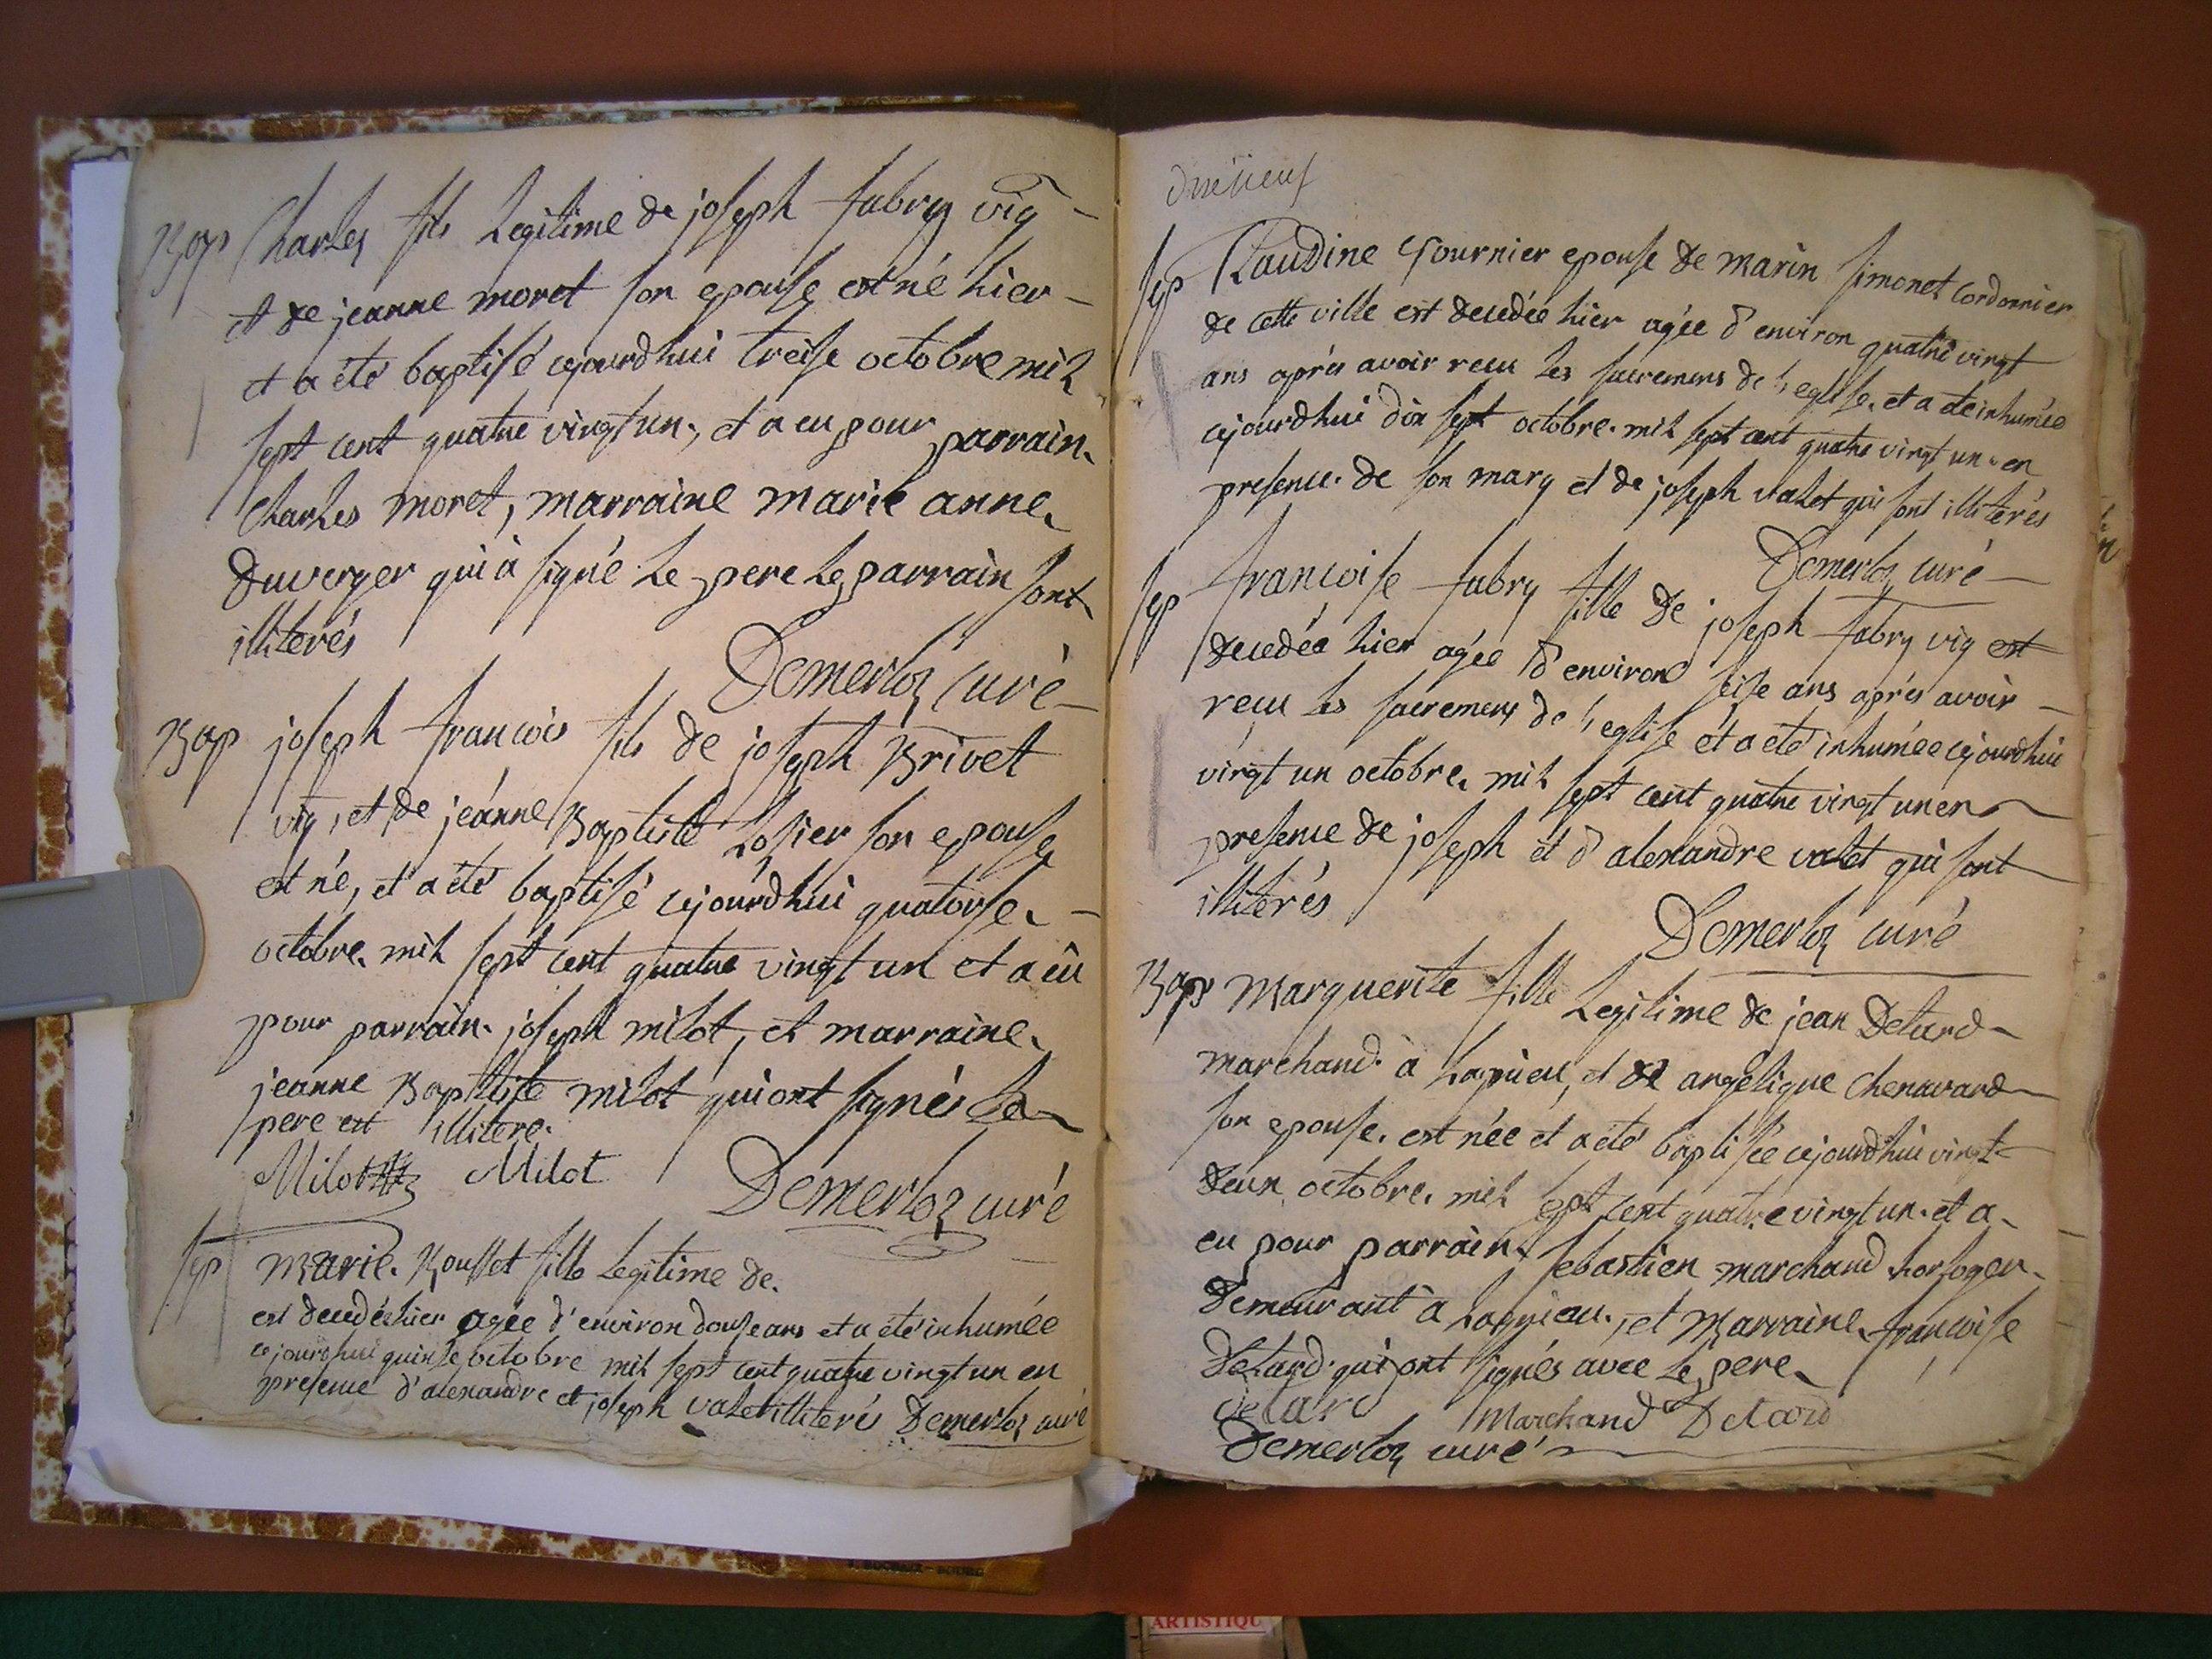 Bap Charles fils Legitime de joseph fabry vig
et de jeanne moret son epouse est né hier
et a été baptisé cejourdhui treise octobre mil
sept cent quatre vingt un, et a eu pour parrain
Charles moret, marraine marie anne
Duverger qui à signé Le pere Le parrain sont
illiterés
Demerloz curé
Bap joseph francois fils de joseph Brivet
vig, et de jeanne Baptiste Losier son epouse
est né, et a été baptisé cejourdhui quatorse
octobre mil sept cent quatre vingt un et a eû
pour parrain joseph milot, et marraine
jeanne Baptiste milot qui ont signés Le
pere est illitere.
Milot Milot Demerloz curé
sep Marie Rousset fille Legitime de
est decedée hier agée d'environ douse ans et a été inhumée
cejourdhui quinse octobre mil sept cent quatre vingt un en
presence d'alexandre et joseph valet illiterés Demerloz curé
sep Claudine fournier epouse de marin simonet cordonnier
de cette ville est decedée hier agée d'environ quatre vingt
ans après avoir recu les sacremens de l'eglise, et a été inhumée
cejourdhui dix sept octobre mil sept cent quatre vingt un en
presence de son mary et de joseph valet qui sont illiterés
Demerloz curé
sep francoise fabry fille de joseph fabry vig est
decedée hier agée d'environ seise ans après avoir
recu les sacremens de l'eglise et a été inhumée cejourdhui
vingt un octobre mil sept cent quatre vingt un en
presence de joseph et d'alexandre valet qui sont
illiterés
Demerloz curé
Bap Marguerite fille Legitime de jean Delard
marchand à Lagnieu, et de angelique Chenavard
son epouse est née et a été baptisée cejourdhui vingt
deux octobre mil sept cent quatre vingt un et a
eu pour parrain sebastien marchand horloger
demeurant à Lagnieu, et Marraine francoise
Delard qui ont signés avec Le pere
delard Marchand Delard
Demerloz curé
ARTISTIQU